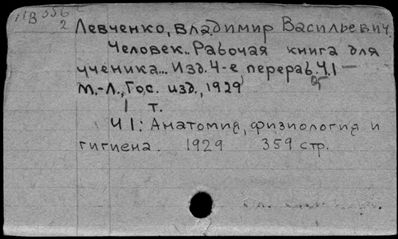 11в 556
2
Левченко, Владимир Васильевич.
Человек.. Рабочая книга для
ученика... Изд. 4-е, перераб. Ч.1 —
М.-Л., Гос. изд., 1929
1 т.
Ч 1: Анатомия, физиология и
гигиена. 1929 359 стр.